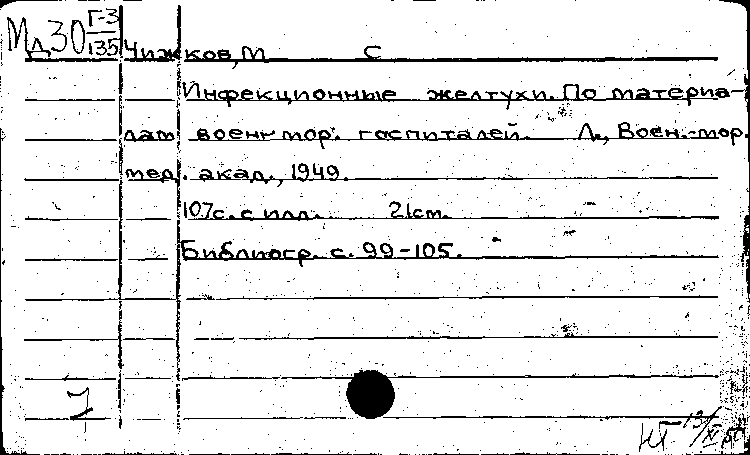 Мд30 Г-3/135
Чижков, М С
Инфекционные желтухи. По материа-
лам военмор. госпиталей. Л., Воен.-мор.
мед. акад., 1949.
107с. с илл. 21см.
Библиогр. с. 99-105.